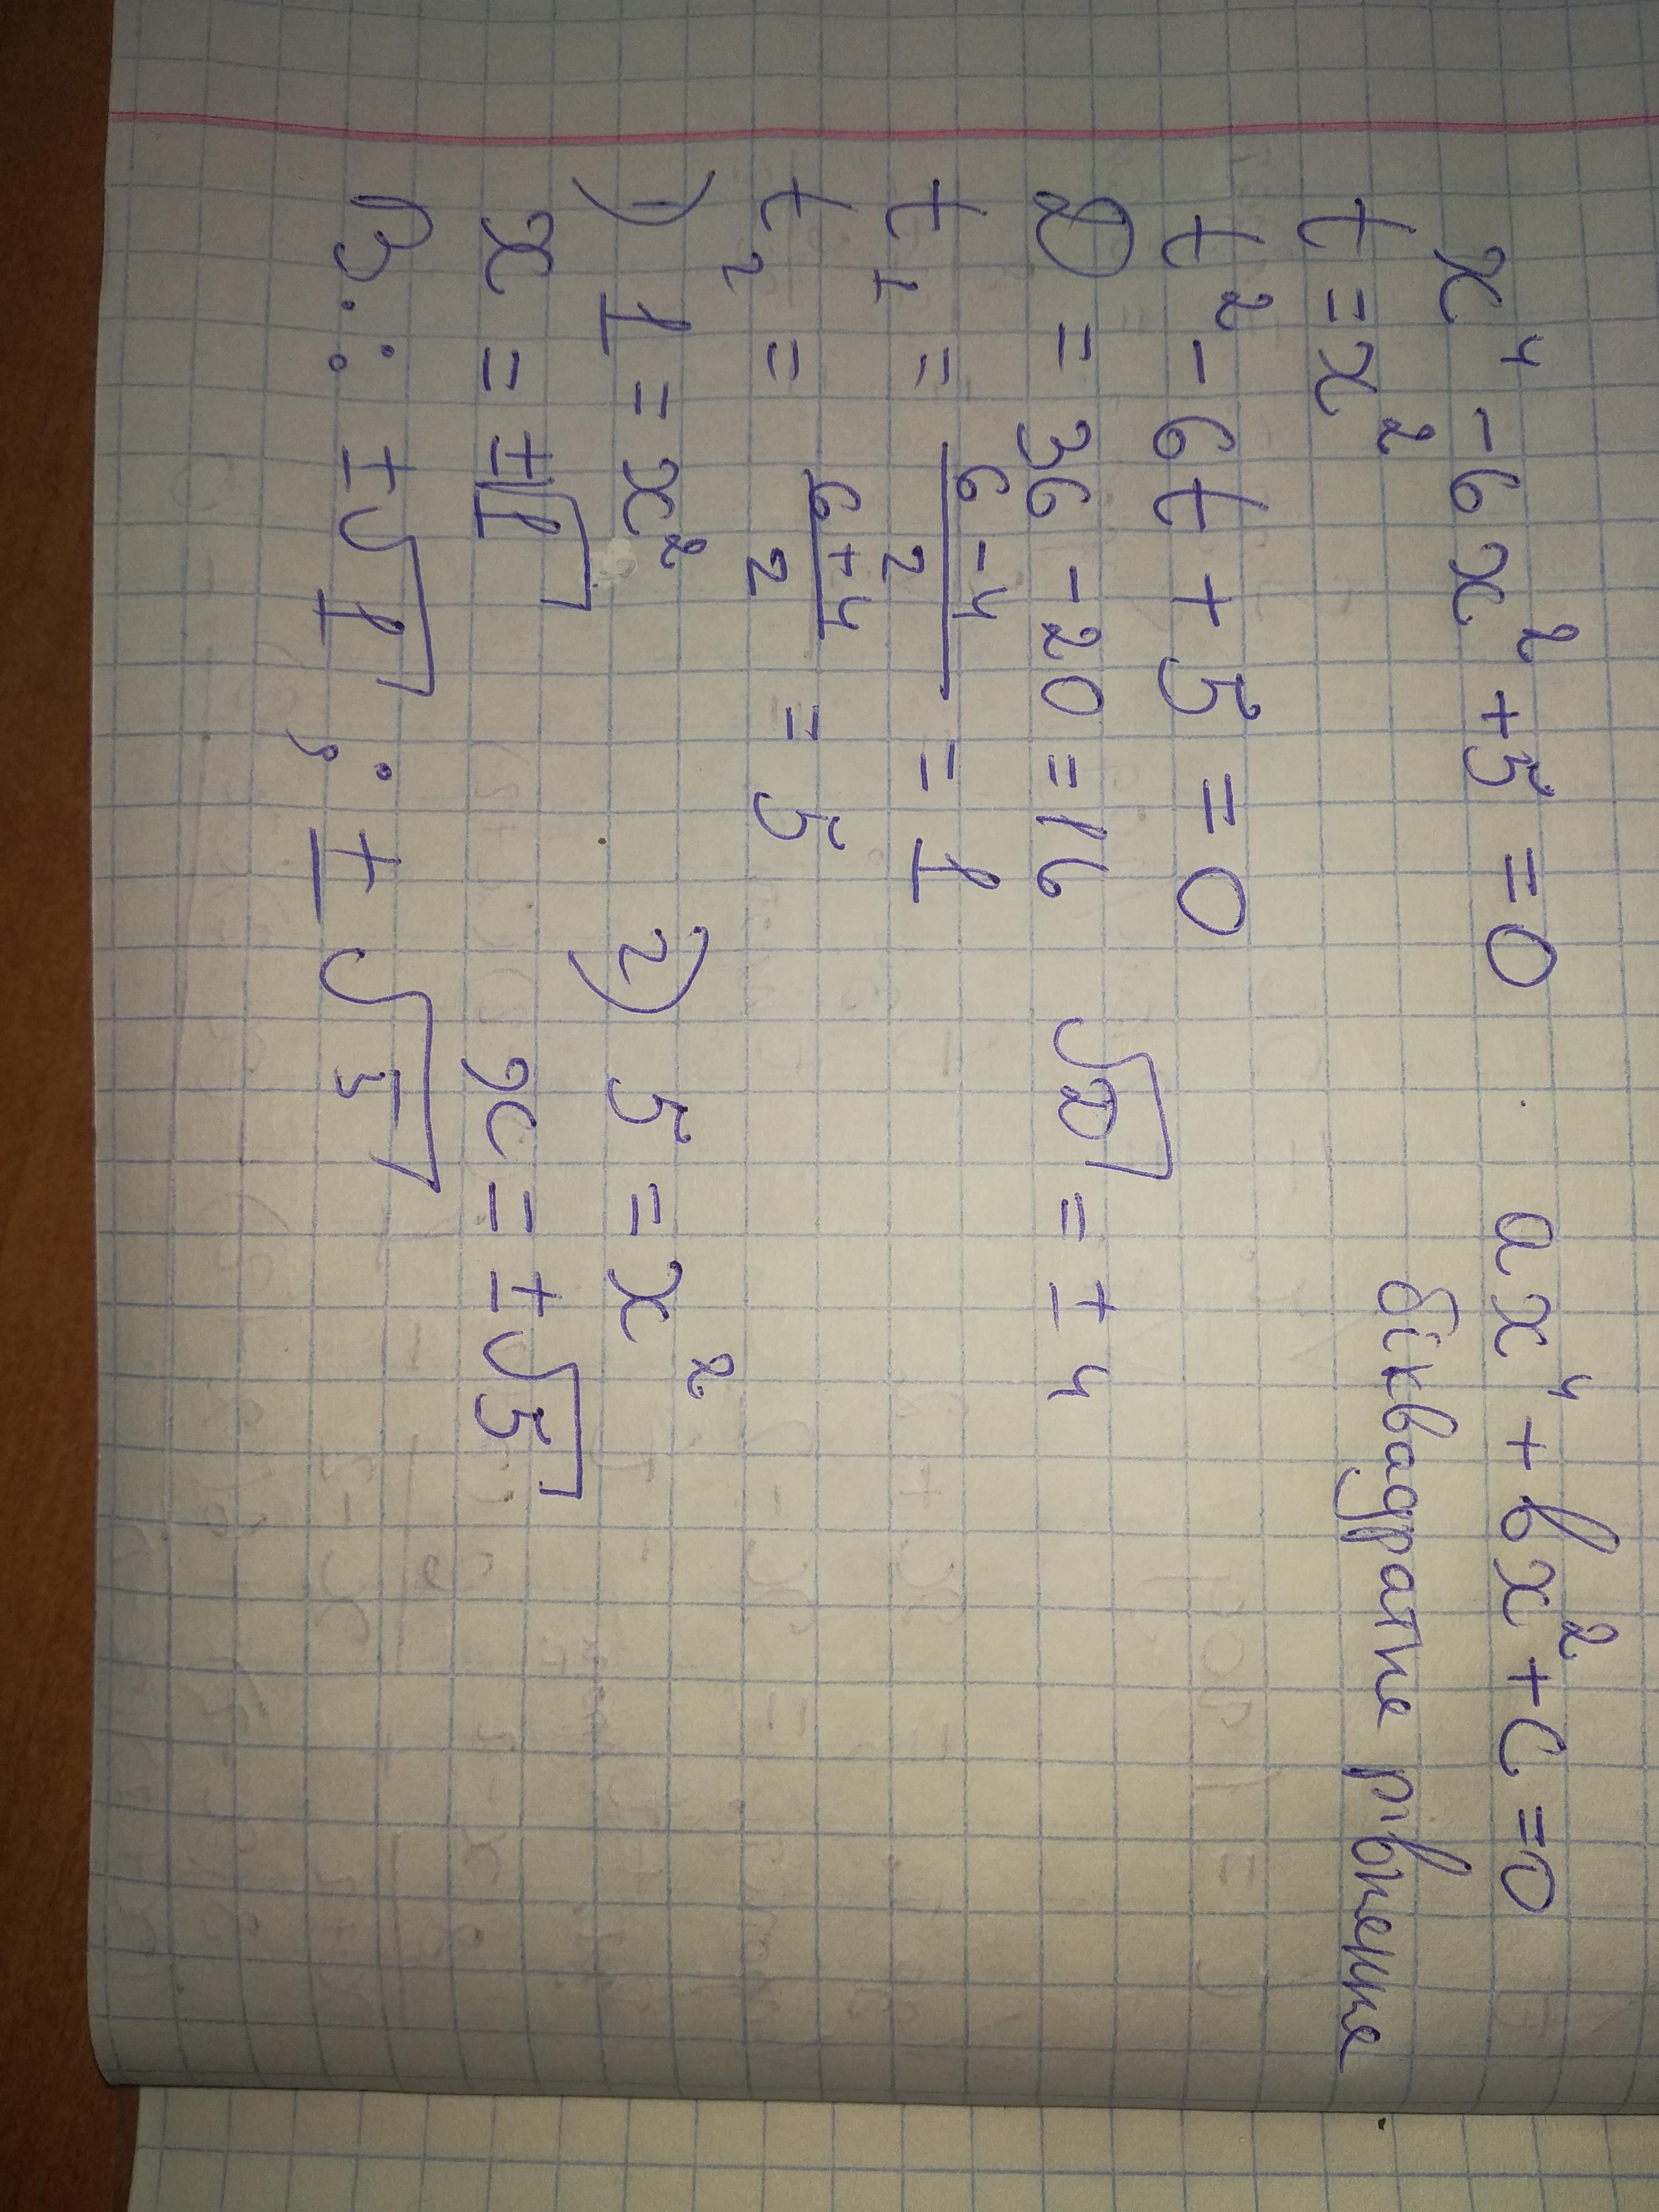 x⁴ - 6x² + 5 = 0 ax⁴ + bx² + c = 0
t = x² біквадратне рівнення
t² - 6t + 5 = 0
D = 36 - 20 = 16 √D = ± 4
t₁ = (6 - 4)/2 = 1
t₂ = (6 + 4)/2 = 5
1) 1 = x² 2) 5 = x²
x = ±√1 x = ±√5
В: : ±√1 ; ±√5